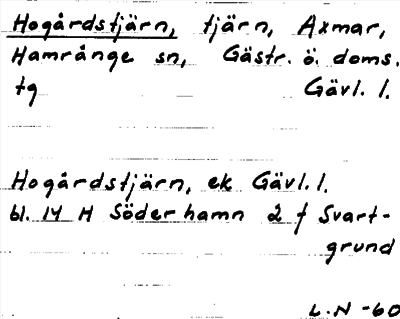 Hogårdstjärn, tjärn, Axmar,
Hamrånge sn, Gästr. ö. doms.
tg Gävl. l.
Hogårdstjärn, ek Gävl. l.
bl. 14 H Söderhamn 2 f Svart-
grund
L.N -60